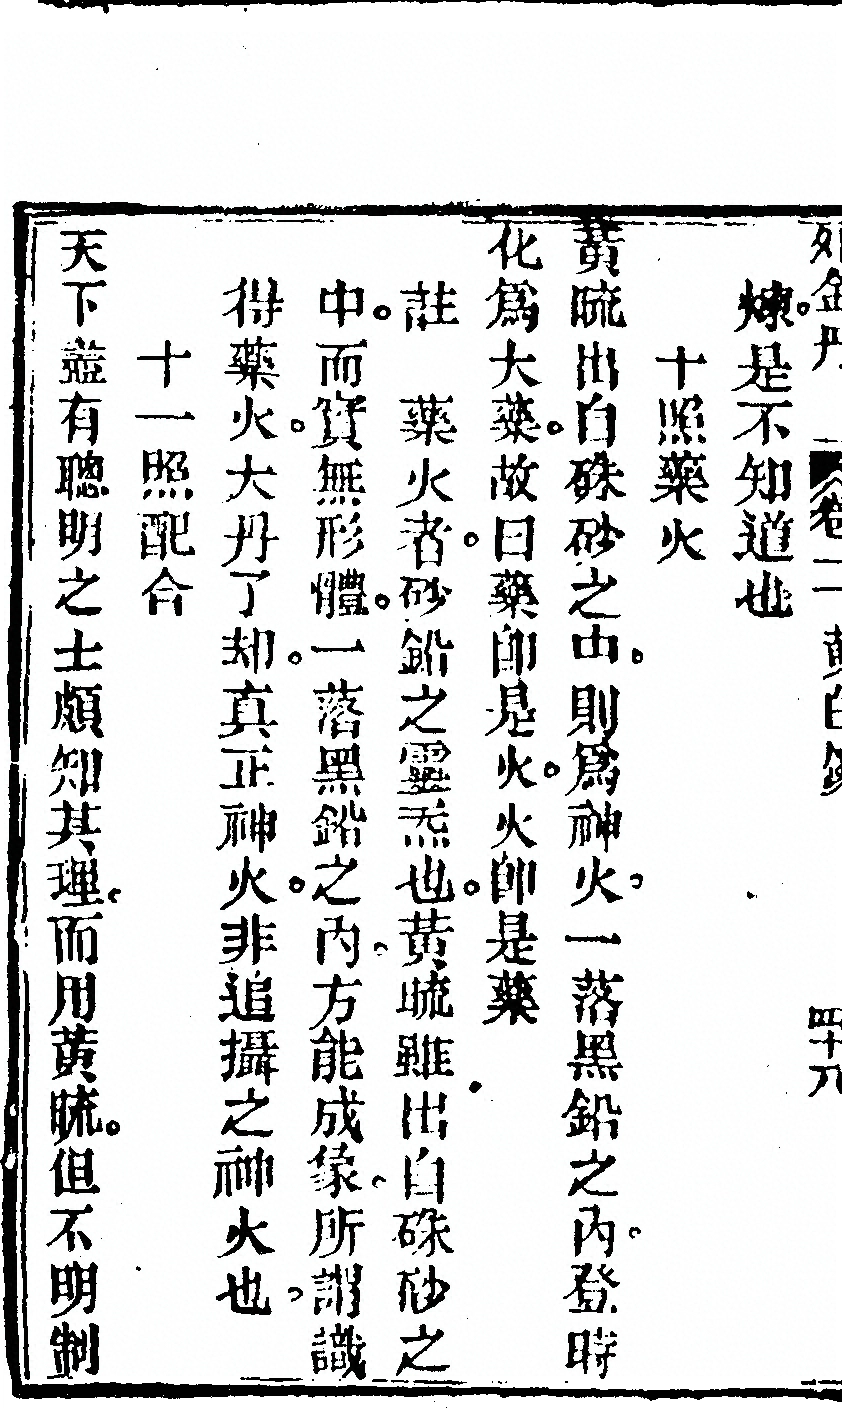 外金丹 卷二 黃白鏡 四十八
煉。是不知道也
十照藥火
黃硫出自硃砂之中。則爲神火。一落黑鉛之內。登時
化爲大藥。故曰藥卽是火。火卽是藥
註 藥火者。砂鉛之靈炁也。黃硫雖出自硃砂之
中。而實無形體。一落黑鉛之內。方能成象。所謂識
得藥火。大丹了却。真正神火。非追攝之神火也。
十一照配合
天下盡有聰明之士頗知其理。而用黃硫。但不明制